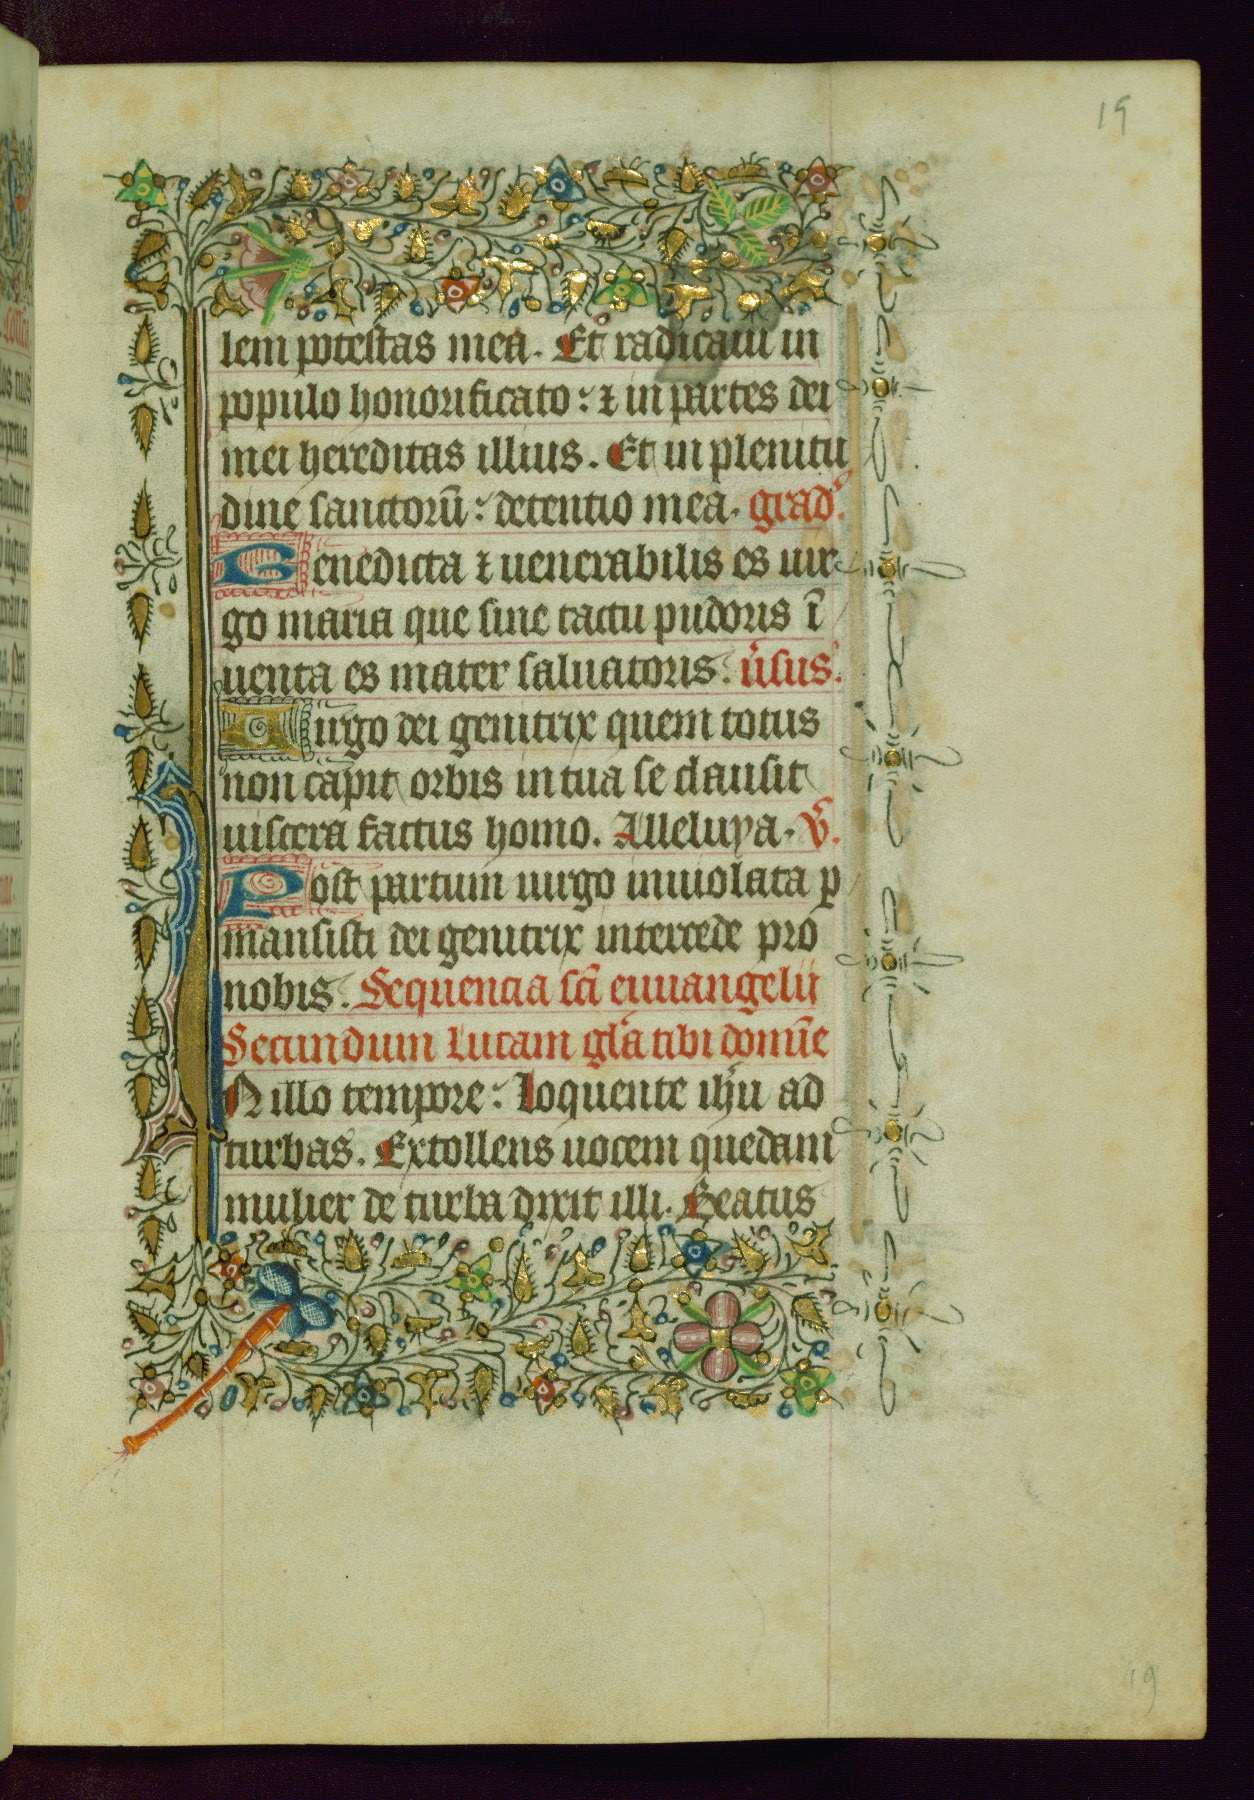 19
lem potestas mea. Et radicaui in
populo honorificato: & in partes dei
mei hereditas illius. Et in plenitu
dine sanctoru᷑: detentio mea. grad᷑.
Benedicta & uenerabilis es uir
go maria que sine tactu pudoris ī
uenta es mater saluatoris. u᷑sus.
Uirgo dei genitrix quem totus
non capit orbis in tua se clausit
uiscera factus homo. Alleluya. v᷑.
Post partum uirgo inuiolata ꝑ
mansisti dei genitrix intercede pro
nobis. Sequencia sc̄i euuangelii
Secundum Lucam gl᷑a tibi domīe
N illo tempore: Loquente ih᷑u ad
turbas. Extollens uocem quedam
mulier de turba dixit illi. Beatus
19